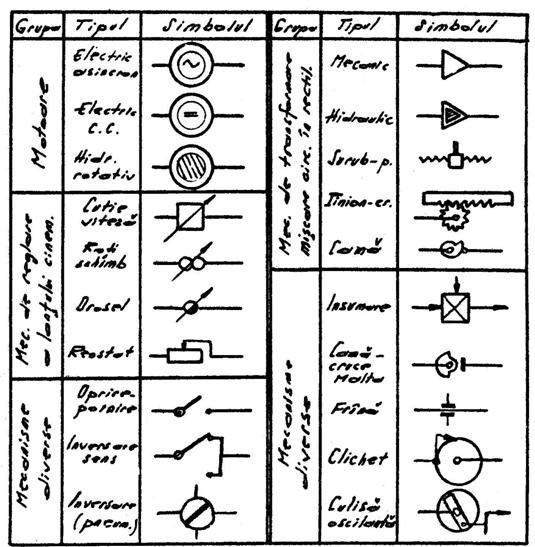 Grupa Tipul Simbolul
Motoare
Electric
asincron
Electric
C.C.
Hidr.
rotativ
Mec. de reglare
a lanţului cinem.
Cutie
viteză
Roţi
schimb
Drosel
Reostat
Mecanisme
diverse
Oprire-
pornire
Inversare
sens
Inversare
(pneum.)
Grupa Tipul Simbolul
Mec. de transformare
mişcare circ. în rectil.
Mecanic
Hidraulic
Şurub-p.
Pinion-cr.
Camă
Mecanisme
diverse
Insumare
Camă-
cruce
Malta
Frînă
Clichet
Culisă
oscilantă